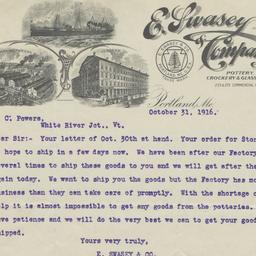 E. Swasey
& Compa
POTTERY
CROCKERY & GLASS
Portland, Me.
October 31, 1916.
C. Powers,
White River Jct., Vt.
er Sir:- Your letter of Oct. 30th at hand. Your order for Ston
hope to ship in a few days now. We have been after our Factory
everal times to ship these goods to you and we will get after the
gain today. We want to ship you the goods but the Factory has mo
usiness then they can take care of promptly. With the shortage o
elp it is almost impossible to get any goods from the potteries.
ave patience and we will do the very best we can to get your good
hipped.
Yours very truly,
E. SWASEY & CO.